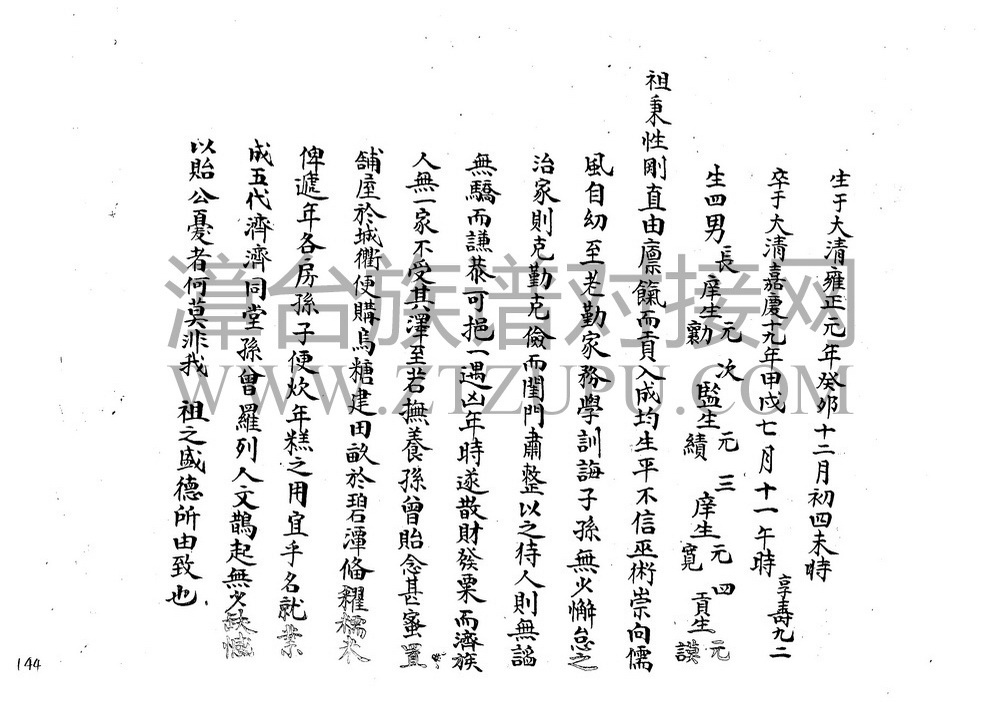 生于大清雍正元年癸夘十二月初四未時
卒于大清嘉慶十九年甲戌七月十一午時 享壽九二
生四男 長庠生元勷 次監生元績 三庠生元寬 四貢生元謨
祖秉性剛直由廪餼而貢入成均生平不信巫術崇向儒
風自幼至老勤家務學訓誨子孫無少懈怠之
治家則克勤克儉而閨門肅整以之待人則無諂
無驕而謙恭可挹一遇凶年時遂散財發粟而濟族
人無一家不受其澤至若撫養孫曾貽念甚蜜置
舖店於城衢便購烏糖建田畝於碧潭俻糴糯米
俾遞年各房孫子便炊年糕之用宜乎名就業
成五代濟濟同堂孫曾羅列人文鵲起無少缺憾
以貽公憂者何莫非我 祖之盛德所由致也
144
漳台族谱对接网
WWW.ZTZUPU.COM